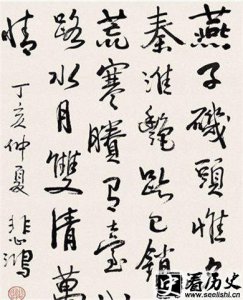 燕子磯頭惟
秦淮艷跡已銷
荒寒賸有臺
路水月雙清萬
情
丁亥仲夏
悲鴻
看历史
www.seelishi.cn